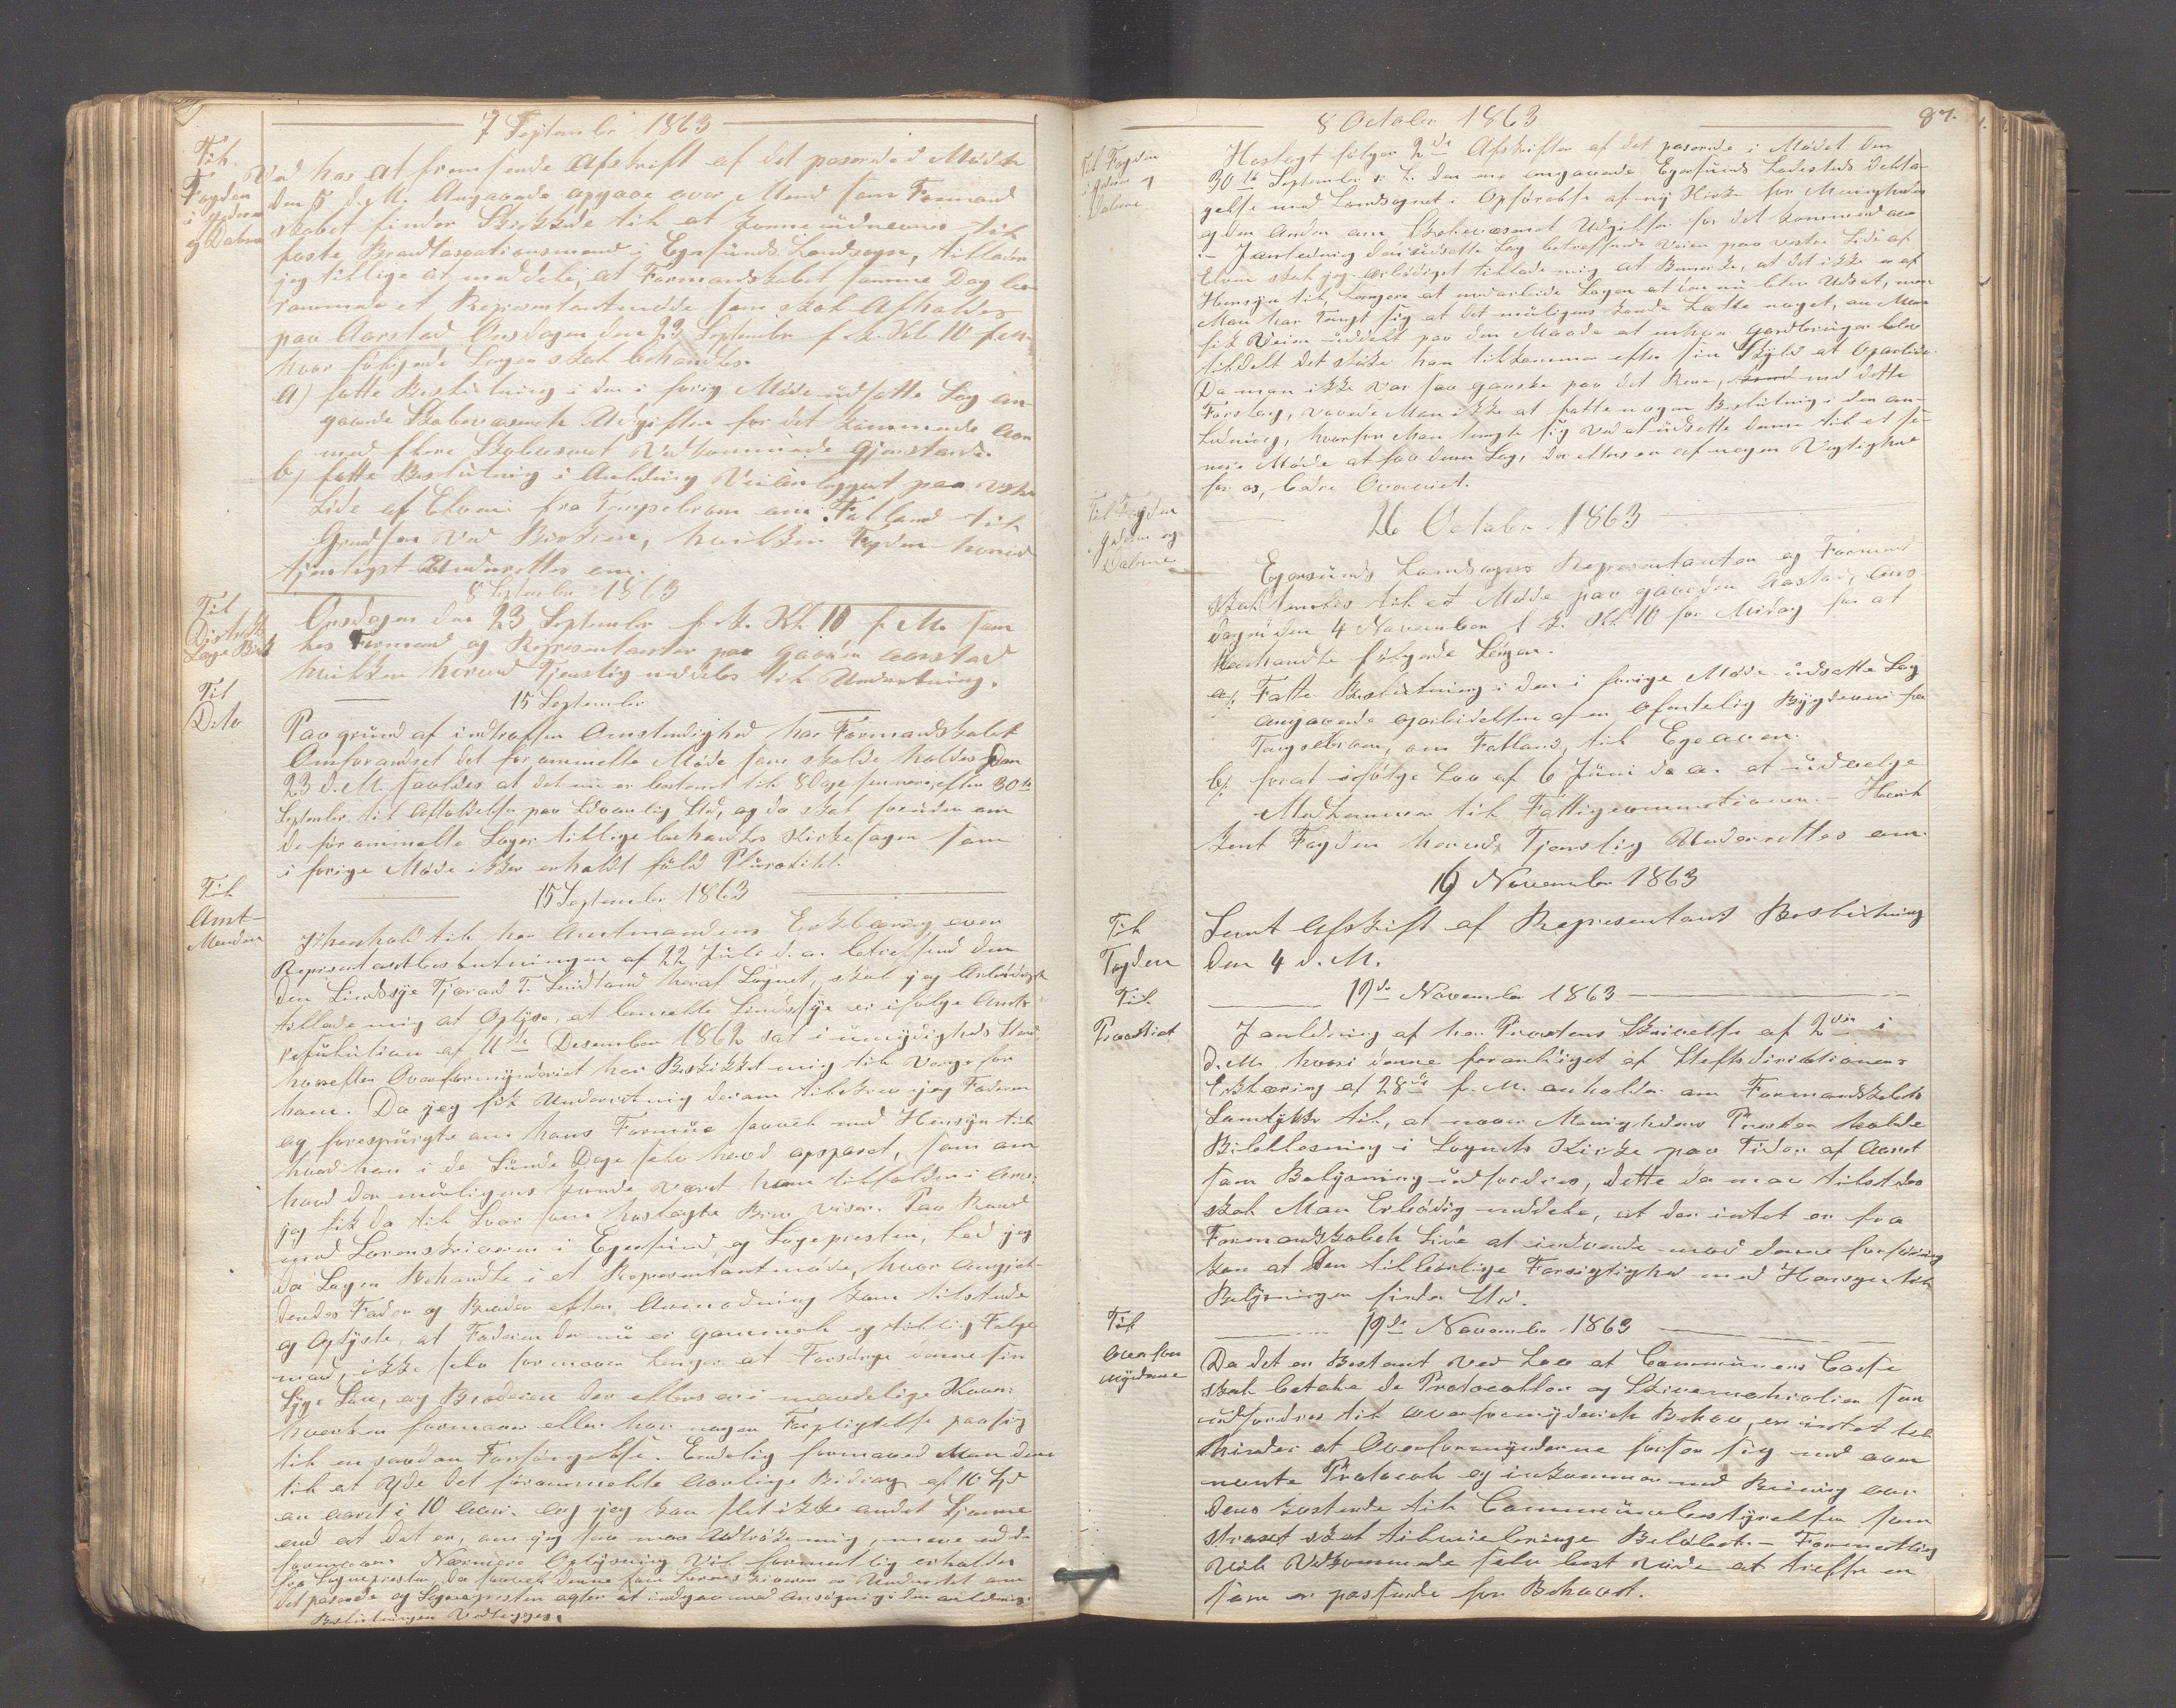 7 September 1863
Til
Fogden
i Jedern
og Dalene
Ved her at fremsende Afskrift af det paserede i Mødet
den 5 d. M. Angaaende opgave over Mend som Formand
skabet finder Skikkede til at kunne udnevnes til
faste Brandtaxationsmend i Egersunds Landsogn, tillader
jeg tillige at meddele, at Formandskabet samme Dag
et Representantmøde som skal Afholdes
paa Aarstad Onsdagen den 23 September f. k. Kl. 10 f.m.
hvor følgende Sager skal behandles.
a) fatte Beslutning i den i forrig Møde udsatte Sag an-
gaaende Skolevæsenets Udgifter for det kommende Aar
med flere Skolevæsenet Vedkommende Gjenstande.
b) fatte Beslutning i Anledning Veianlegget paa vestre
Side af Elven fra Tengselbroen om Fotland til
Grudsen ved Birkrem, hvilken Fogden herved
tjenstligst Underrettes om.
8 September 1863
Til
Distrikts
Læge
Onsdagen den 23 September f. k. Kl. 10 f. M. sam
les Formend og Representanter paa Gaarden Aarstad
hvilken herved Tjenstlig meddeles til Underretning.
15 September
Til
Dito
Paa grund af indtrufne Omstendighed har Formandskabet
Omforandret det forommelte Møde som skulde holdes den
23 d. M. saaledes at det nu er bestemt til 8 Dage senere, efter 30te
September til Afholdelse paa sedvanlig Sted, og da skal foruden om
de forommelte Sager tillige behandles Kirkesagen som
i forige Møde ikke erholdt fuld Pluralitet.
15 September 1863
Til
Amt-
Manden
I henhold til her Amtmandens Erklæring over
Representantbeslutningen af 22 Juli d. a. betreffend den
den Sindssyge Tjerand T. heraf Sognet, skal jeg Ærbødigst
tillade mig at Oplyse, at bemelte Sindssyge er ifølge Amts
resulution af 11te Desember 1862 sat i umyndigheds Stand
hvorefter Overformynderiet har Beskikket mig til Verge for
ham. Da jeg fik Underretning derom tilskrev jeg Faderen
og forespurgte om hans Formue saavel med Hensyn til
hvad han i de Sunde Dage selv havd opsparet, som om
hvad der muligens kunde Veret ham tilfalden i Arv.
jeg fik da til Svar som hoslagte Brev viser. Paa Raad
med Sorenskriveren i Egersund, og Sogepresten, lod jeg
da Sagen Behandle i et Representantmøde, hvor Angjel-
dendes Fader og Brøder efter Anmodning kom tilstede
og Oplyste, at Faderen der nu er gammel og tillig Følge
mand, ikke selv formaaer lenger at Forsørge denne sin
Syge Søn, og Broderen der ellers er i maadelige Kaar
hverken formaaer eller har nogen Forpligtelse paa sig
til en saadan Forsørgelse. Endelig formaaed Man dem
til at Yde det forommelte aarlige Bidrag af 10 Spd
om aaret i 10 Aar. og jeg kan slet ikke andet
end at det er, om jeg saa maa Udtrøke mig, mere end de
formaaer. Nærmere Oplysning Vil formentlig erholdes
fra Sognepresten, da saavel denne som Sorenskriveren er Underrettet om
det paserede og Sognepresten agter at indgaa med Ansøgning i den anledning.
Beslutningen Vedlegges.
87.
8 October 1863
Til Fogden
i Jedern og
Dalene
Hoslagt følger 2de Afskrifter af det paserede i Mødet den
30te September s. l. den ene angaaende Egersunds Ladesteds Delta-
gelse med Landsognet i Opførelse af ny Kirke for Menigheden
og den Anden om Skolevæsenet Udgifter for det kommend Aar
I anledning den udsatte Sag betreffende Veien paa vestre Side af
Elven skal jeg ærbødigst tillade mig at Bemerke, at det ikke er af
Hensyn til, Lengere at modarbeide Sagen at den nu blev Udsat, men
Man har Tengt sig at det muligens kunde Lette noget, om Man
fik Veien inddelt paa den Maade at enhver Gaardbruger blev
tildelt det støke ham tilkommer efter sin Skyld at Oparbeide.
Da man ikke Var saa ganske paa det Rene, med dette
Forslag, vovede Man ikke at fatte nogen Beslutning i den an-
ledning, hvorfor Man tengte sig Ved at udsette denne til et se-
nere Møde at faa denne Sag, der ellers er af nogen Vigtighed
for os, bedre Overveiet.
26 October 1863
Til Fogden
i Jedern og
Dalene
Egersunds Landsogns Representanter og Formend
skal samles til et Møde paa gaarden Aarstad, Ons-
dagen den 4 November f. k. Kl. 10 for Midag for at
Behandle følgende Sager.
a/ Fatte Beslutning i den i forige Møde udsatte Sag
angaaende oparbeidelsen af en offentelig Bygdevei fra
Tengselbroen, om Fotland, til Egeaaen.
b/ for at ifølge Lov af 6 Juni d. a. at udvelge
Medlemmer til Fattigcommisionen. Hvilket
Fogden herved Tjenstlig Underrettes om.
16 November 1863
Til
Fogden
Sent Afskrift af Representant Beslutning
den 4 d. M.
19de November 1863
Til
Provstiet
I anledning af her Provstens Skrivelse af 2den i
d. M. hvori denne foranlediget af Stiftsdirektionens
Erklæring af 28de f. M. anholder om Formandskabets
Samtykke til, at naar Menighedens Prester holde
Bibellesning i Sognets Kirke paa Tider af Aaret
som Belysning udfordres, dette da maa tilstedes
skal Man Erbødig meddele, at der intet er fra
Formandskabets Side at indvende mod denne forføining
kan at Den tilbørlige Forsigtighed med Hensyn til
Belysningen finder Sted.
19de November 1863
Til
Overfor
mynderne
Da det er Bestemt ved Lov at Communens Casse
skal betale de Protocoller og Skrivematrialier som
udfordres til Overformynderiets Behov, er intet til
hinder at Overformynderne forser sig med oven
nevnte Protocol og inkommer med Reining over
dens kostende til Communebestyrelsen som
straxt skal tilveiebringe Beløbet. - Formentlig
Ville Vedkommende selv best Vide at treffe en
som er passende for Behovet.